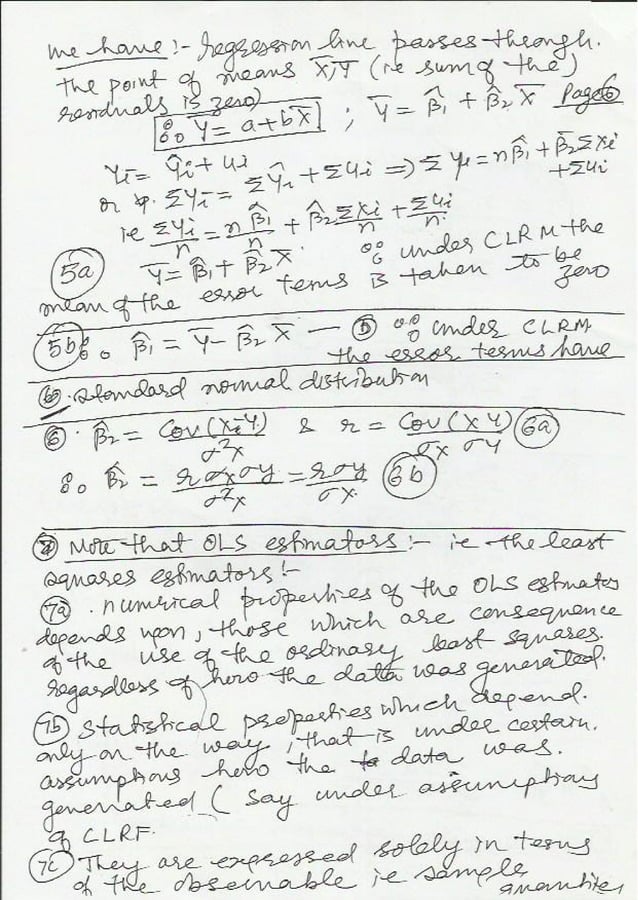 we have :- Regression line passes through.
the point of means X̄, Ȳ (ie sum of the)
residuals is zero)
∴ Ȳ = a + bX̄ ; Ȳ = β̂₁ + β̂₂ X̄ Page 6
Yi = Ŷi + ui
or ΣYi = ΣŶi + Σui ⇒ Σyi = nβ̂₁ + β̂₂Σxi
+ Σui
ie ΣYi/n = nβ̂₁/n + β̂₂Σxi/n + Σui/n
5a Ȳ = β̂₁ + β̂₂ X̄. ∵ under CLRM the
mean of the error terms is taken to be zero
5b ∴ β̂₁ = Ȳ - β̂₂ X̄ — 5 ∵ under CLRM
the error terms have
6. standard normal distribution
6 β̂₂ = Cov(XiY)/σ²x & r = Cov(XY)/σx σy 6a
∴ β̂₂ = r σx σy/σ²x = r σy/σx 6b
7 Note that OLS estimators :- ie the least
squares estimators :-
7a . numrical properties of the OLS estmators
depends upon, those which are consequence
of the use of the ordinary least squares.
regardless of how the data was generated.
7b statistical properties which depend.
only on the way, that is under certain.
assumptions how the data was.
generated ( say under assumptions
of CLRF.
7c They are expressed solely in terms
of the observable ie sample quantites